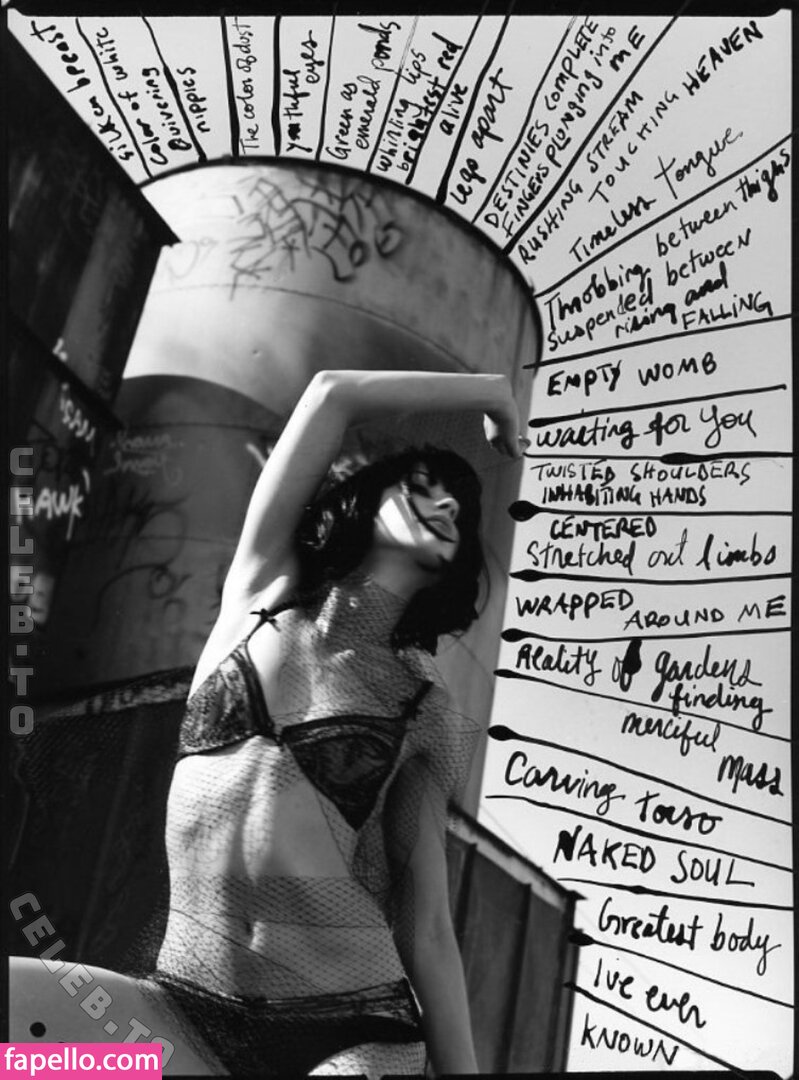 silken breast
Color of white
Quivering
nipples
The color of dust
youthful
eyes
Green as
emerald ponds
whirling lips
brightest red
alive
legs apart
DESTINIES COMPLETE
FINGERS PLUNGING into
ME
RUSHING STREAM
TOUCHING HEAVEN
Timeless tongue
Throbbing between thighs
suspended between
rising and
FALLING
EMPTY WOMB
waiting for You
TWISTED SHOULDERS
INHABITING HANDS
CENTERED
Stretched out limbs
WRAPPED AROUND ME
Reality of gardens
finding
merciful
mass
Carving torso
NAKED SOUL
Greatest body
I've ever
KNOWN
HAWK
CELEB.TO
CELEB.TO
fapello.com